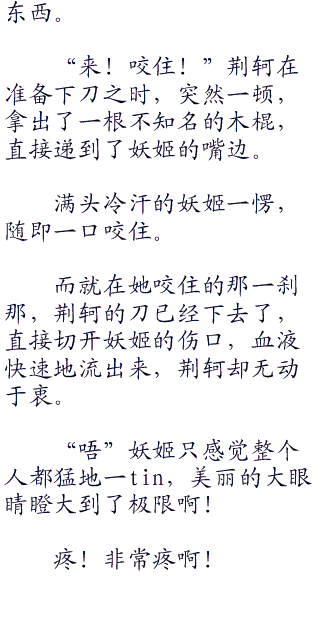 东西。
“来！咬住！”荆轲在
准备下刀之时，突然一顿，
拿出了一根不知名的木棍，
直接递到了妖姬的嘴边。
满头冷汗的妖姬一愣，
随即一口咬住。
而就在她咬住的那一刹
那，荆轲的刀已经下去了，
直接切开妖姬的伤口，血液
快速地流出来，荆轲却无动
于衷。
“唔”妖姬只感觉整个
人都猛地一tin，美丽的大眼
睛瞪大到了极限啊！
疼！非常疼啊！